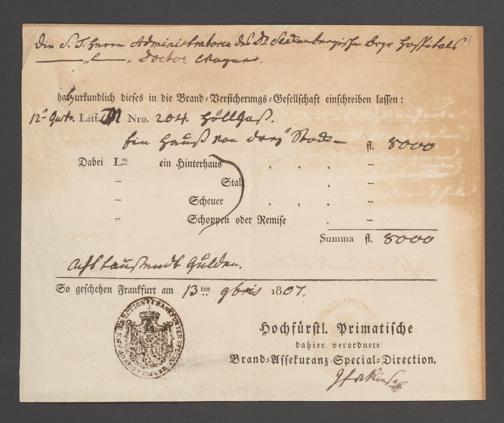 Die S. T. Herrn Administratores des Dr. Senckenbergischen Bürger Hospitals
Doctor
hat urkundlich dieses in die Brand-Versicherungs-Gesellschaft einschreiben lassen:
12te Quart. Litt. M Nro. 204. Höllgaß.
Ein Hauß von drey Stock — fl. 8000
Dabei Ln ein Hinterhaus
Stall
Scheuer
Schoppen oder Remise
Summa fl. 8000
Achttaußendt Gulden.
So geschehen Frankfurt am 13ten 9bris 1807.
Hochfürstl. Primatische
dahier verordnete
Brand-Assekuranz Special-Direction.